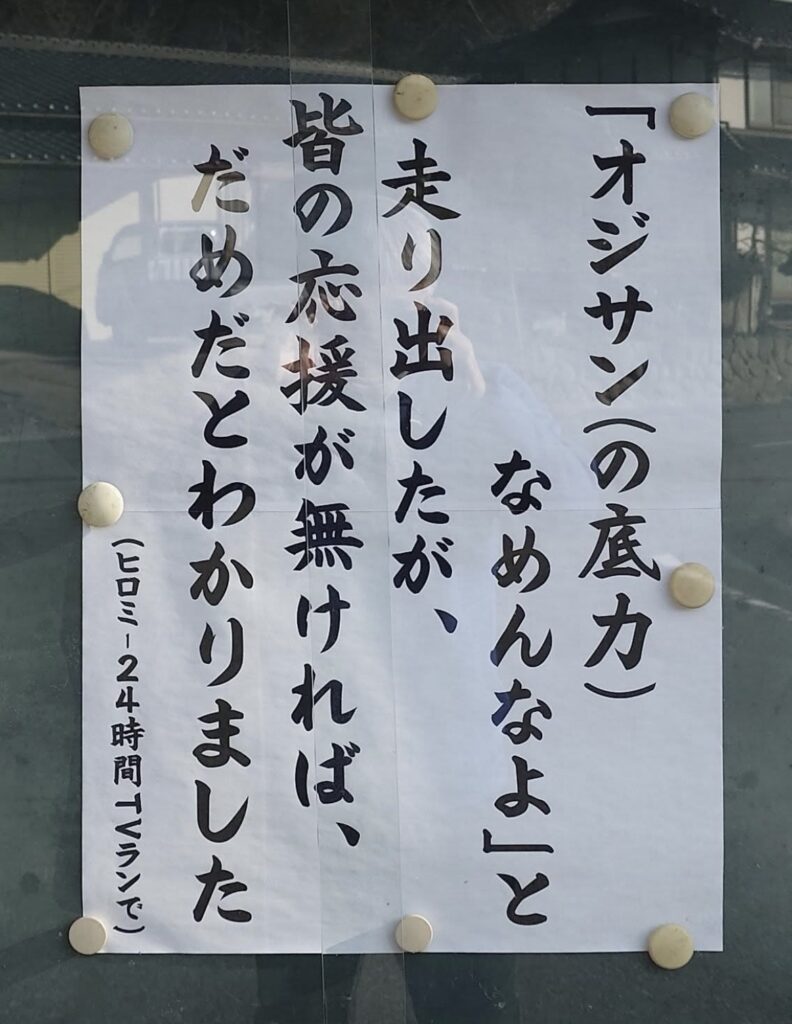 「オジサン(の底力)
なめんなよ」と
走り出したが、
皆の応援が無ければ、
だめだとわかりました
(ヒロミー24時間TVランで)